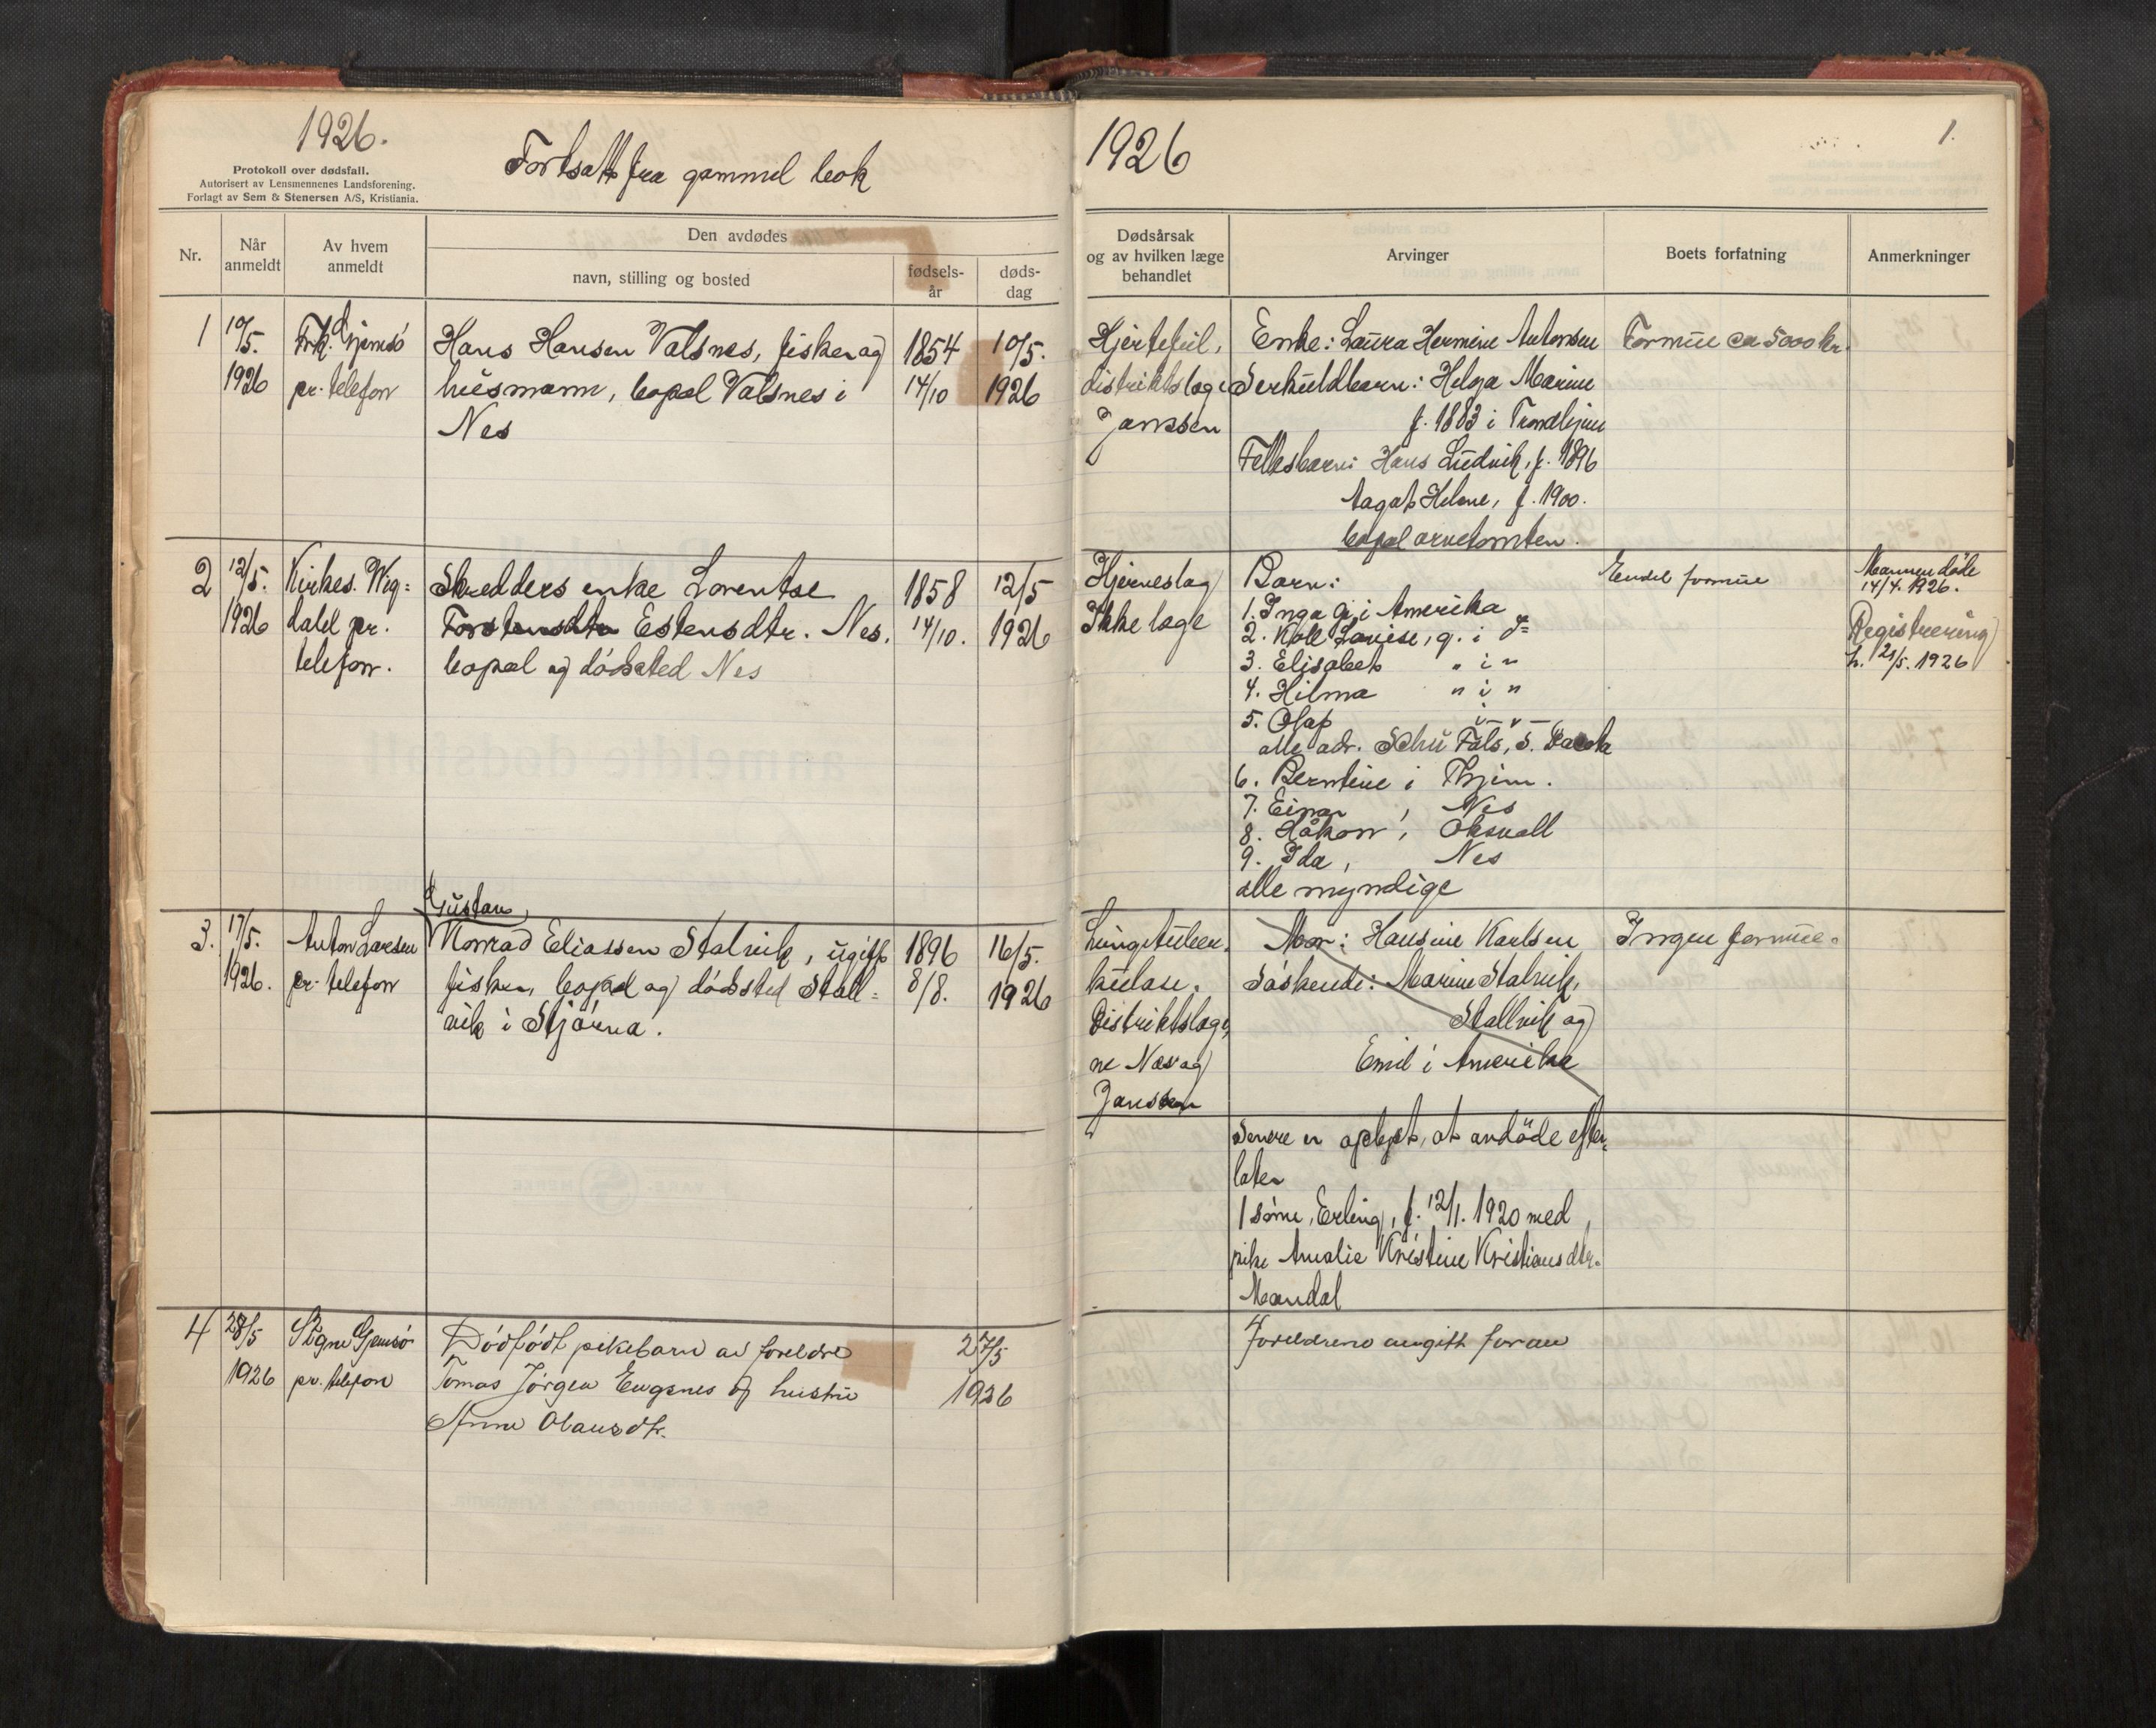 1926.
Protokoll over dødsfall.
Autorisert av Lensmennenes Landsforening.
Forlagt av Sem & Stenersen A/S, Kristiania.
Fortsatt fra gammel bok
Nr.
Når anmeldt
Av hvem anmeldt
Den avdødes
navn, stilling og bosted
fødsels-
år
døds-
dag
1
10/5.
1926
Frk. Gjemsö
pr. telefon
Hans Hansen Valsnes, fisker og
husmann, bopæl Valsnes i
Nes
1854
14/10
10/5.
1926
2
12/5.
1926
Kirkes. Wig=
dahl pr.
telefon.
Skredders enke Lorentse
Estensdtr. Nes.
bopæl og dödssted Nes
1858
14/10.
12/5
1926
3.
17/5.
1926.
Anton Larsen
pr. telefon
Gustav
Konrad Eliassen Stalvik, ugift
fisker, bopæl og dödssted Stall=
vik i Stjörna.
1896
8/8.
16/5.
1926
4
28/5
1926
Signe Gjemsö
pr. telefon
Dödfödt pikebarn av foreldre
Tomas Jörgen Engsnes og hustru
Anna Olausdtr.
27/5
1926
1926
1.
Dødsårsak
og av hvilken læge
behandlet
Arvinger
Boets forfatning
Anmerkninger
Hjertefeil,
distriktslæge
Janssen
Enke: Laura Hermine Antonsen
Serkuldbarn: Helga Marine
f. 1883 i Trondhjem
Fellesbarn: Hans Ludvik, f. 1896
Aagot Helene, f. 1900.
bopæl arvetomten.
Formue ca 5000 kr.
Hjerneslag
Ikke læge
Barn:
1. Inga g. i Amerika
2. Louise, g. i
3. Elisabet " i "
4. Hilma " i "
5. Olaf i - " -
alle adr. S.
6. Berntine i Thjem.
7. Einar, Nes
8. Håkon, Oksvoll
9. Ida, Nes
alle myndige
Endel formue
Mannen döde
14/4. 1926.
Registrering
h. 21/5. 1926
Lungetuber-
kulose.
Distriktslæge,
ne Næs og
Janssen
Mor: Hansine Karlsen
Söskende: Marine Stalvik,
Stallvik og
Emil i Amerika
Ingen formue.
Senere er oplyst, at avdöde efter=
later
1 sönn, Erling, f. 12/1. 1920 med
pike Amalie Kristine Kristiansdtr.
Mandal
Foreldrene angitt foran